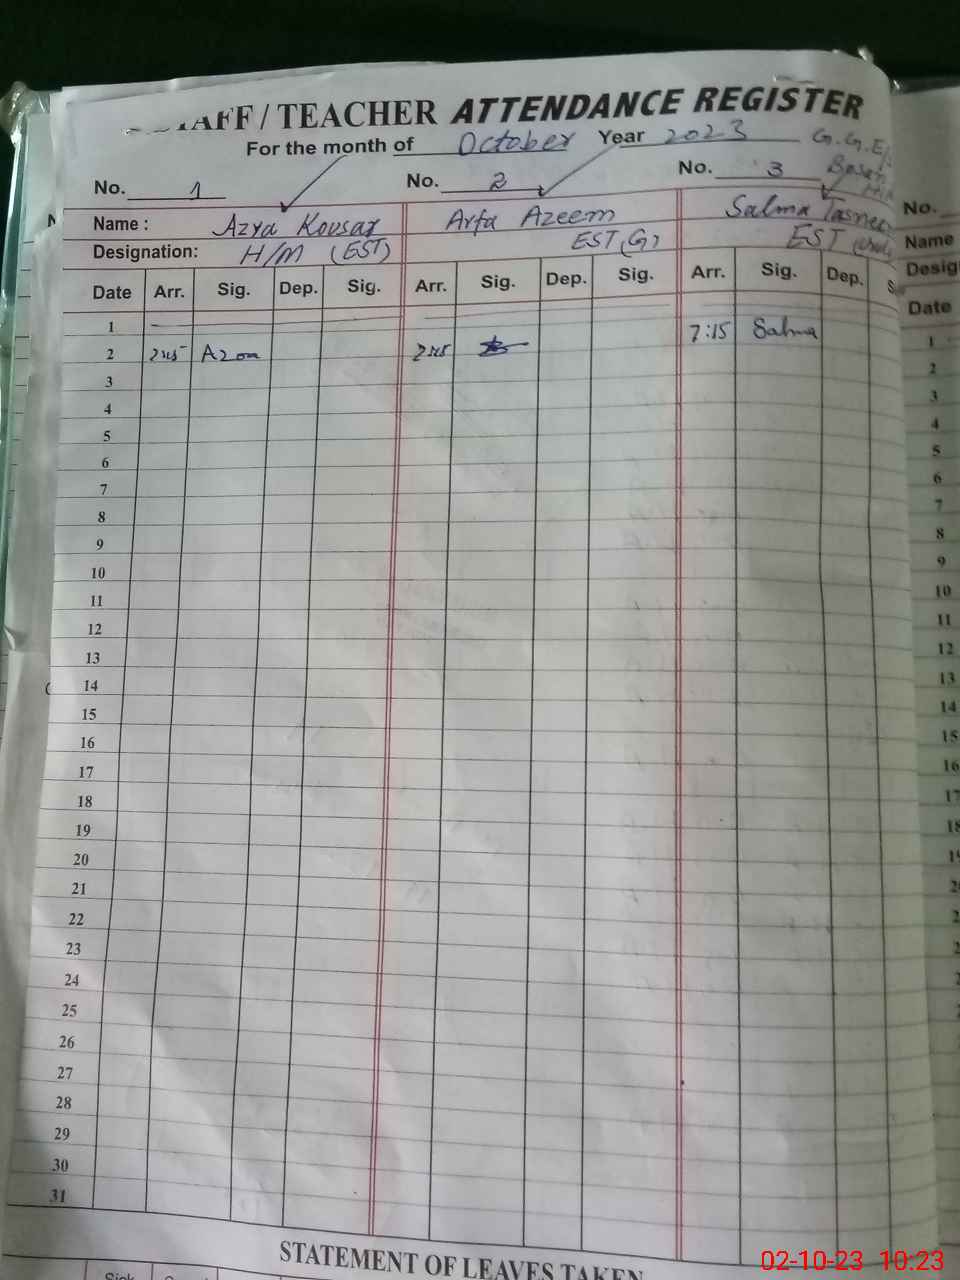 STAFF / TEACHER ATTENDANCE REGISTER
For the month of October Year 2023 G.G.E/S
No. 1 No. 2 No. 3
Name : Azra Kousar Arfa Azeem Salma Tasneem
Designation: H/M (EST) EST (G) EST
Date Arr. Sig. Dep. Sig. Arr. Sig. Dep. Sig. Arr. Sig. Dep. S
1
2 7:15 Salma
3
4
5
6
7
8
9
10
11
12
13
14
15
16
17
18
19
20
21
22
23
24
25
26
27
28
29
30
31
STATEMENT OF LEAVES TAKEN
Sick
No.
Name
Desig
Date
1
2
3
4
5
6
7
8
9
10
11
12
13
14
15
16
17
18
02-10-23 10:23